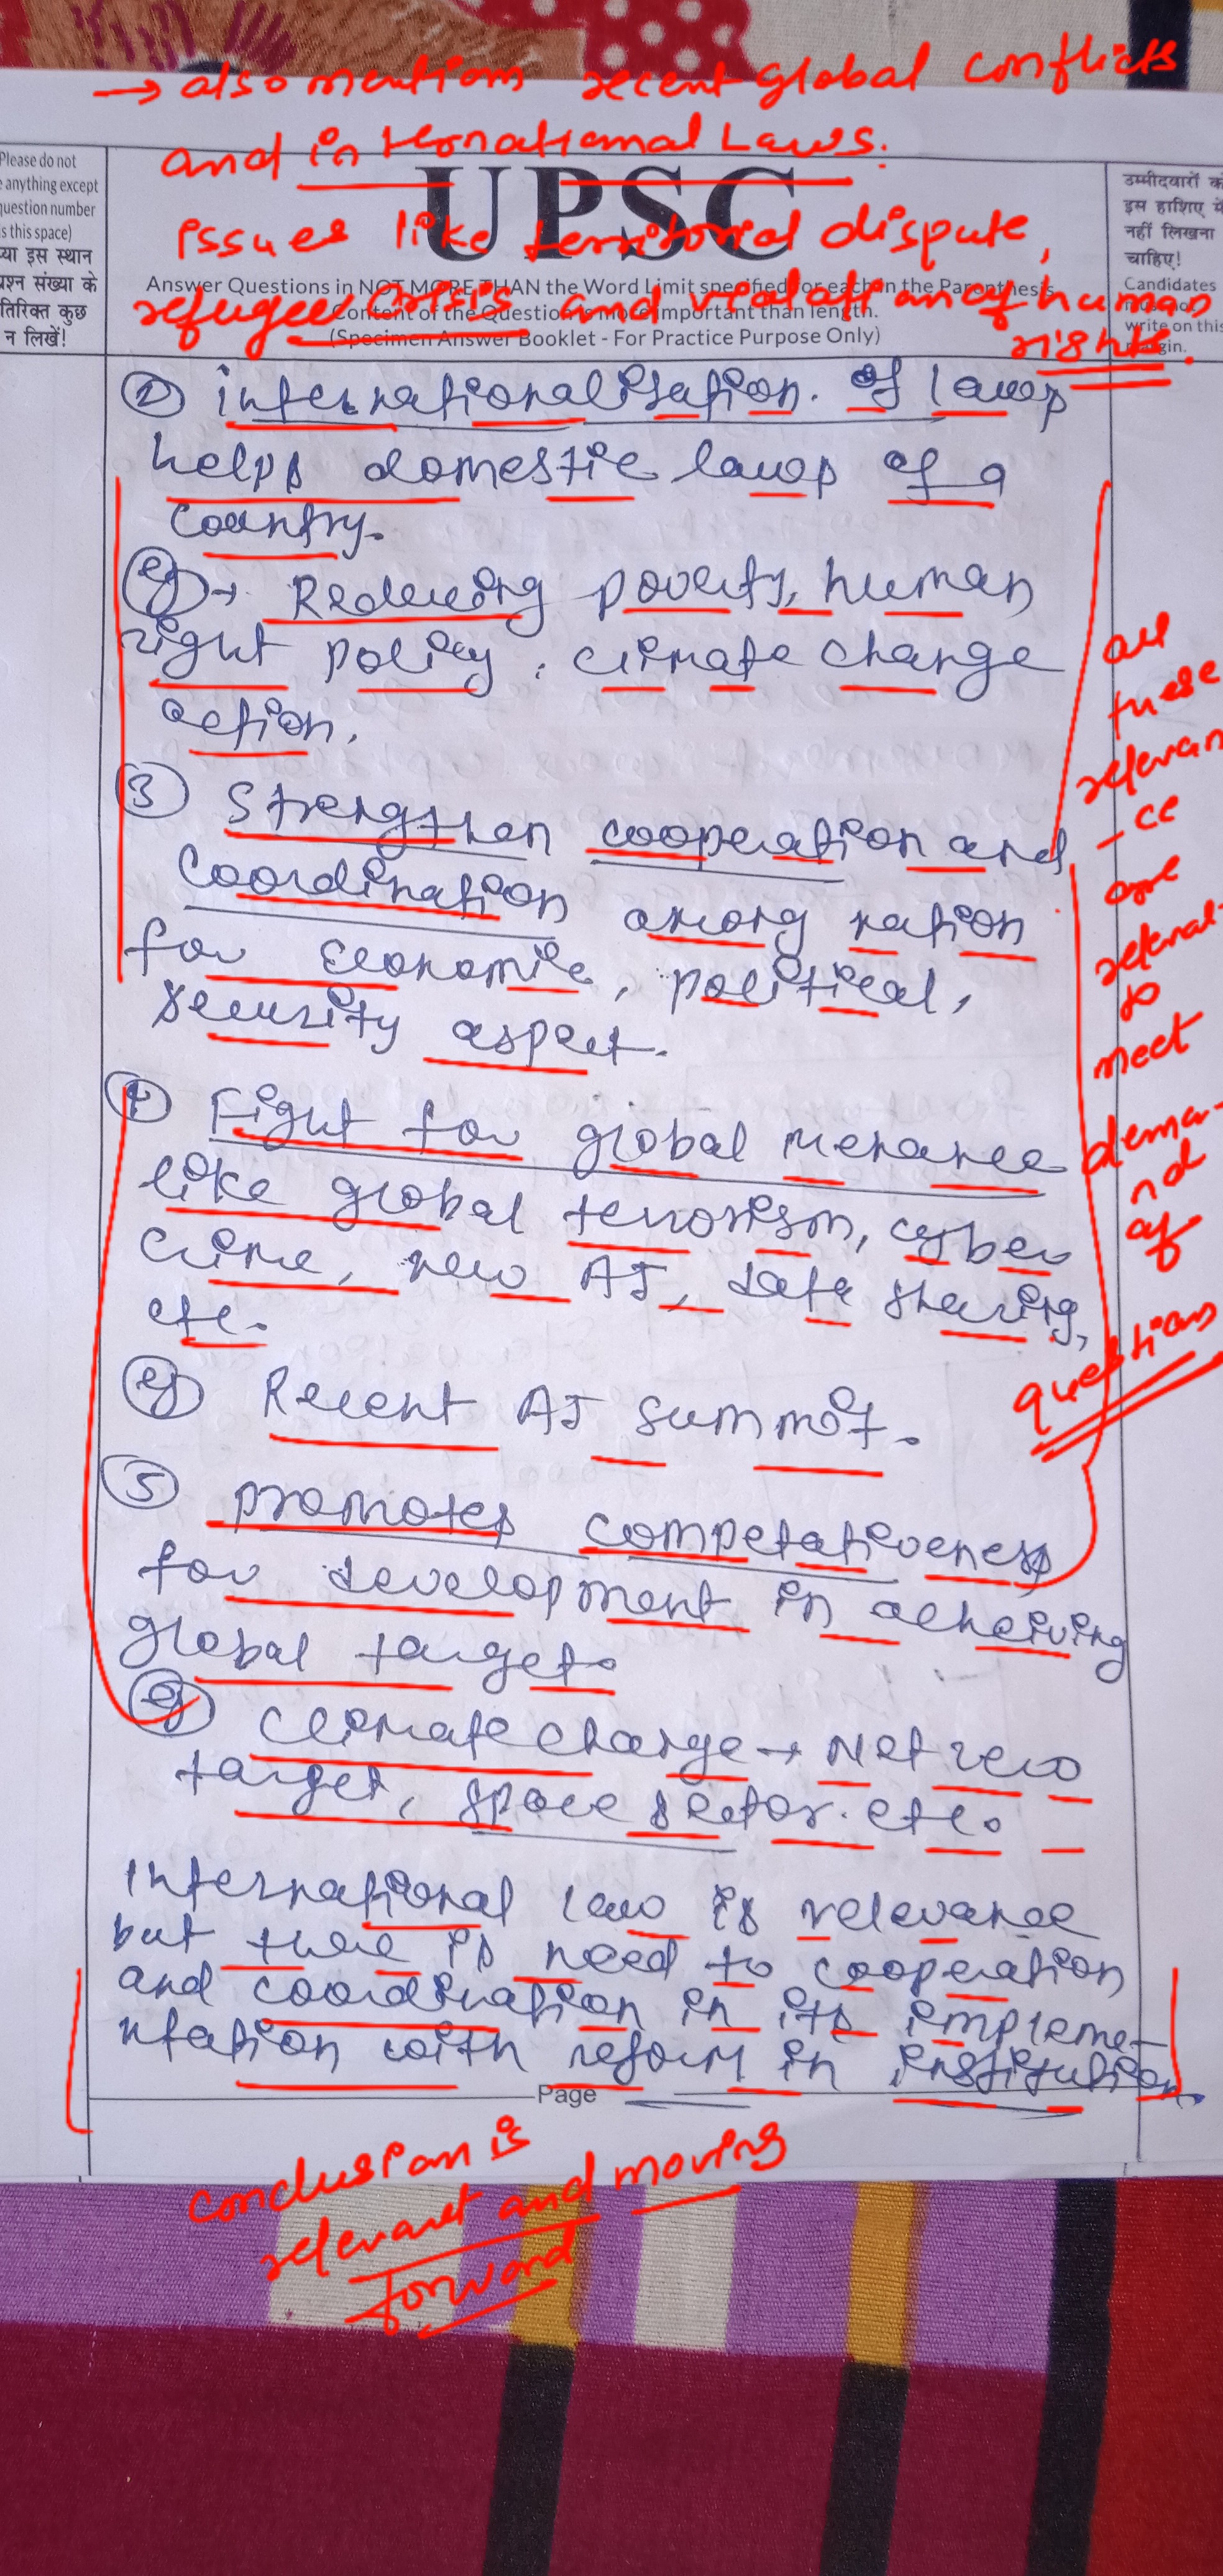 → also mention recent global conflicts
and international Laws.
issues like territorial dispute,
refugee crisis and violation of human
rights.
Please do not
anything except
question number
s this space)
या इस स्थान
प्रश्न संख्या के
तिरिक्त कुछ
न लिखें!
UPSC
Answer Questions in NOT MORE THAN the Word Limit specified for each in the Parenthesis.
Content of the Question is more important than length.
(Specimen Answer Booklet - For Practice Purpose Only)
उम्मीदवारों को
इस हाशिए में
नहीं लिखना
चाहिए!
Candidates
must not
write on this
margin.
② internationalisation. of laws
helps domestic laws of a
country.
eg → Reducing poverty, human
right policy, climate change
action.
③ Strengthen cooperation and
coordination among nation
for economic, political,
security aspect.
④ Fight for global menance
like global terrorism, cyber
crime, new AI, data sharing,
etc.
eg Recent AI summit.
⑤ promotes competativeness
for development in acheiving
global target.
eg climate change → Net zero
target, space sector. etc.
International law is relevance
but there is need to cooperation
and coordination in its impleme-
ntation with reform in institution.
all
these
relevan
-ce
are
to
meet
dema-
nd
of
questions
Page
conclusion is
relevant and moving
forword